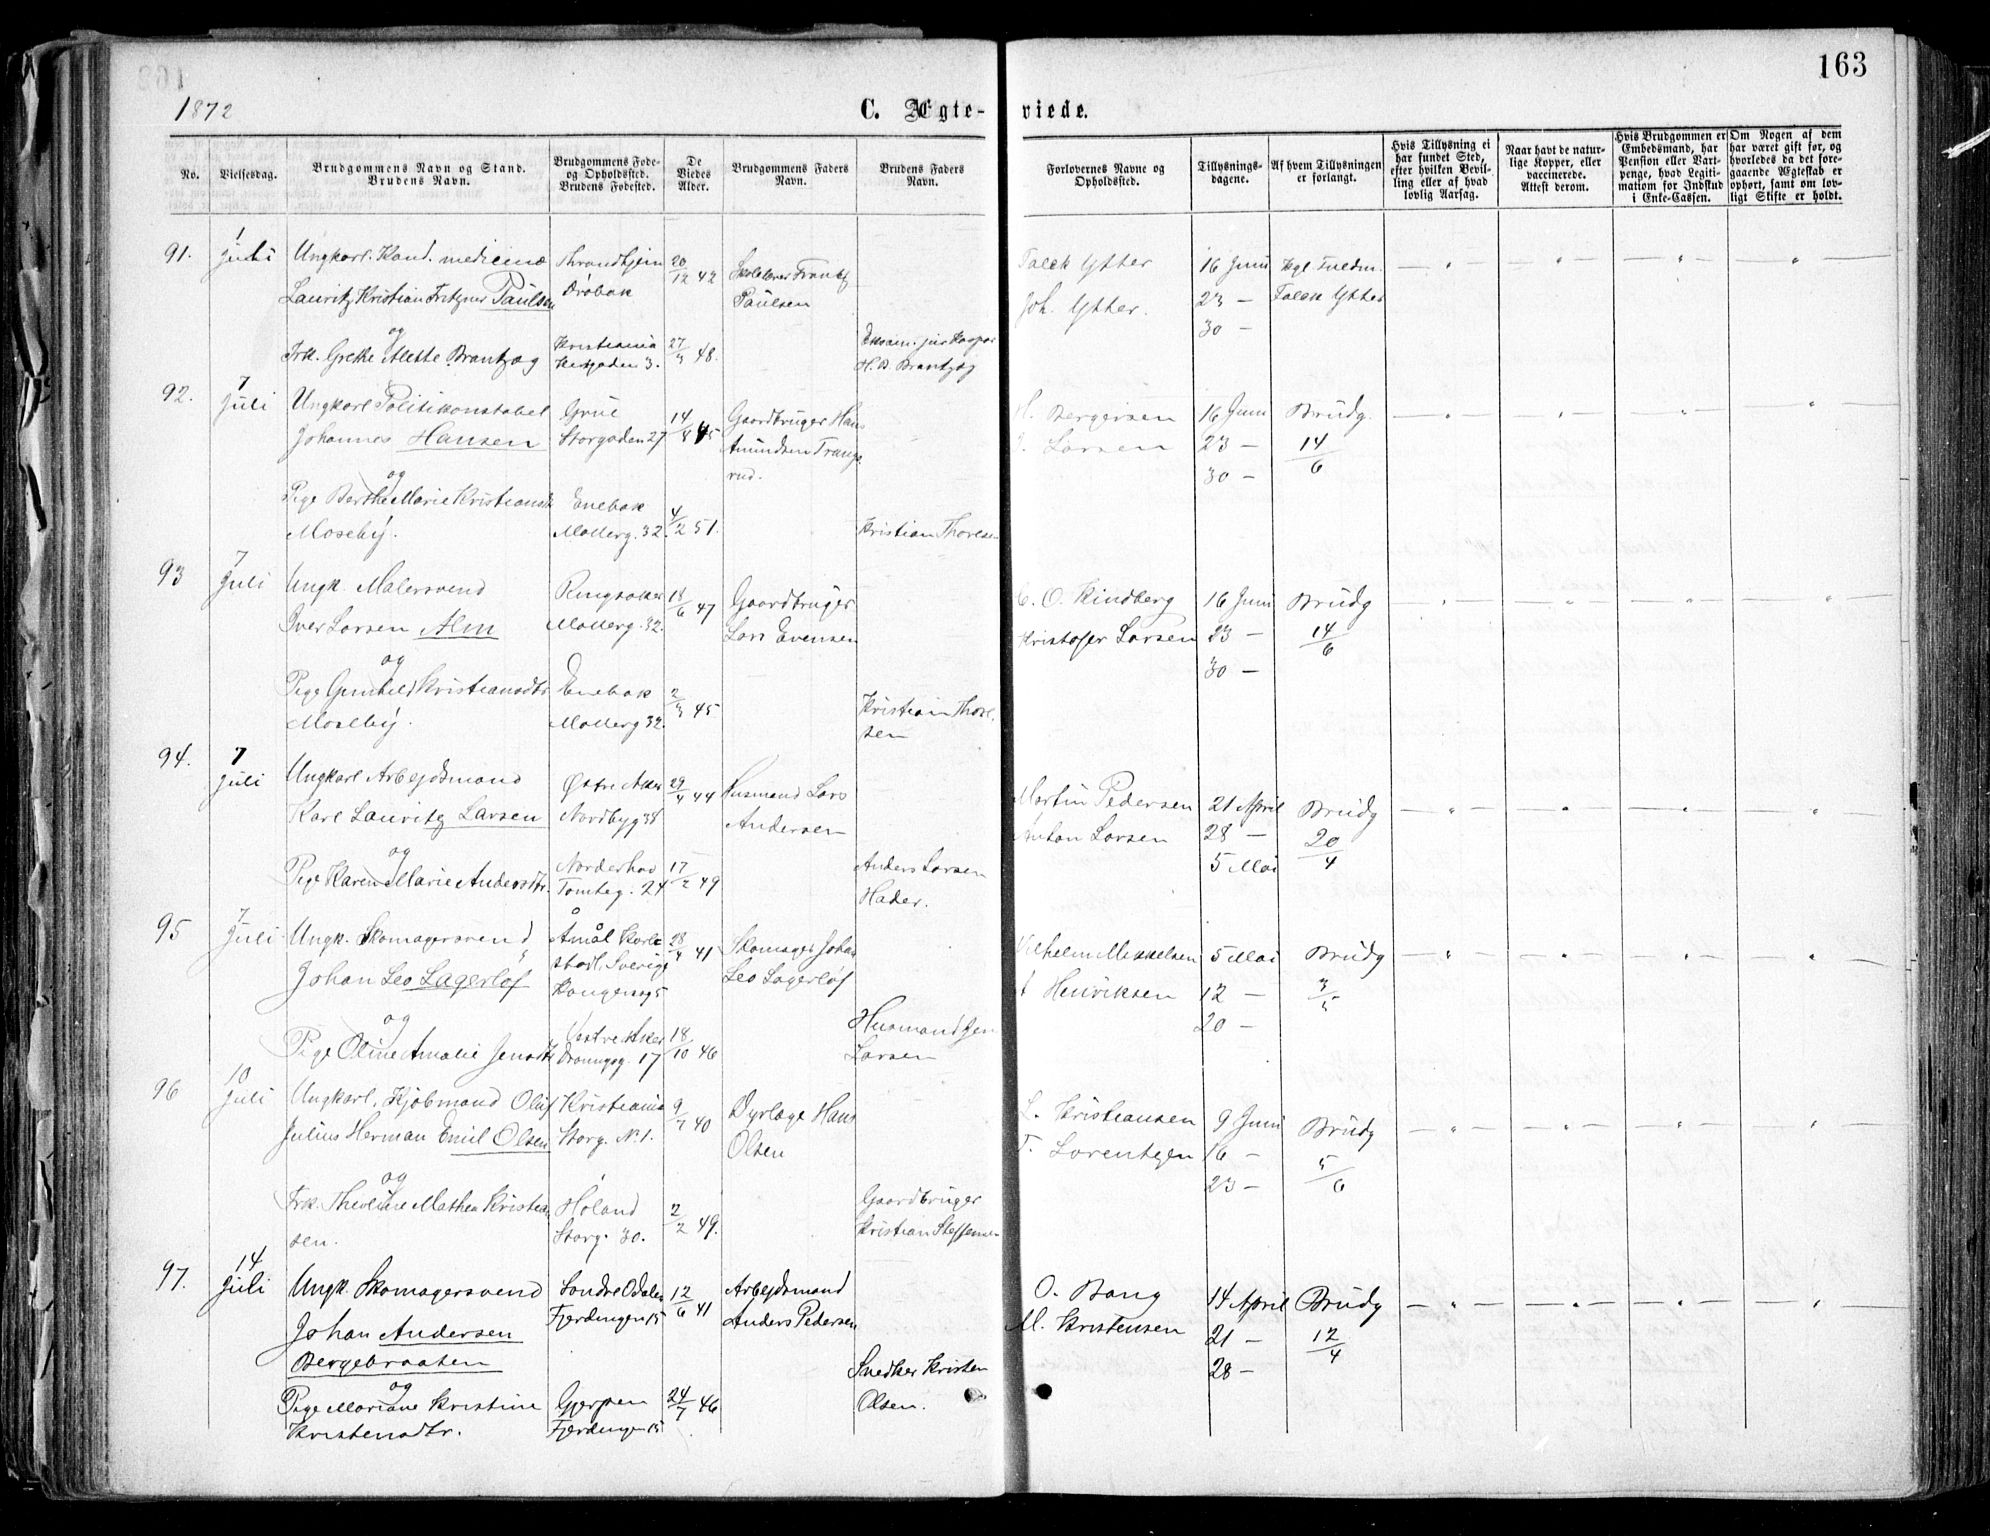 163
1872
C. Ægte-
viede.
No.
Vielsesdag.
Brudgommens Navn og Stand.
Brudens Navn.
Brudgommens Føde-
og Opholdssted.
Brudens Fødested.
De
Viedes
Alder.
Brudgommens Faders
Navn.
Brudens Faders
Navn.
Forlovernes Navne og
Opholdssted.
Tillysnings-
dagene.
Af hvem Tillysningen
er forlangt.
Hvis Tillysning ei
har fundet Sted,
efter hvilken Bevil-
ling eller af hvad
lovlig Aarsag.
Naar havt de natur-
lige Kopper, eller
vaccinerede.
Attest derom.
Hvis Brudgommen er
Embedsmand, har
Pension eller Vart-
penge, hvad Legiti-
mation for Indskud
i Enke-Cassen.
Om Nogen af dem
har været gift før, og
hvorledes da det fore-
gaaende Ægteskab er
ophørt, samt om lov-
ligt Skifte er holdt.
91.
1
Juli
Ungkarl. Kand. medicinæ
Lauritz Kristian Fritzner Paulsen
og
Frk. Grethe Alette Brantzæg
Throndhjem
Drøbak
Kristiania
3.
20/12 42
27/3 48.
Skolelærer Frantz
Paulsen
Exam. jur Kaspar
H. B. Brantzæg
Falck Ytter
Joh. Ytter.
16 Juni
23 —
30 —
Kgl Fuldm.
Falck Ytter
92.
7
Juli
Ungkarl Politikonstabel
Johannes Hansen
og
Pige Berthe Marie Kristiansdtr
Moseby.
Grue
Storgaden 27
Enebak
Møllerg. 32.
14/8 45
4/2 51.
Gaardbruger Hans
Amundsen Trangs
rud.
Kristian Thoresen
H. Bergersen
Larsen
16 Juni
23 —
30 —
Brudg.
14/6
93
7
Juli
Ungk. Malersvend
Iver Larsen Alm
og
Pige Gunhild Kristiansdtr
Moseby.
Ringsaker
Møllerg. 32.
Enebak
Møllerg 32.
18/6 47
2/3 45
Gaardbruger
Lars Evensen
Kristian Thore
sen
O. Kindberg
Kristofer Larsen
16 Juni
23 —
30 —
Brudg
14/6
94.
7
Juli
Ungkarl Arbejdsmand
Karl Lauritz Larsen
og
Pige Karen Marie Andersdtr.
Østre Aker
Nordbyg 38
Norderhov
Tomteg. 24
29/4 44
17/2 49
Husmand Lars
Andersen
Anders Larsen
Hader.
Martin Pedersen
Anton Larsen
21 April
28 —
5 Mai
Brudg
20/4
95
7
Juli
Ungk. Skomagersvend
Johan Leo Lagerlöf
og
Pige Oline Amalie Jensdtr
Åmål Karl-
stad. Sverige
Kongensg 5
Vestre Aker
Dronngsg. 17
28/4 41
18/10 46
Skomager Johan
Leo Lagerlöf
Husmand Jen
Larsen
Vilhelm Mikkelsen
A Henriksen
5 Mai
12 —
20 —
Brudg
3/5
96
10
Juli
Ungkarl. Kjøbmand Oluf
Julius Herman Emil Olsen
og
Frk. Theoline Mathea Kristian
sen.
Kristiania
Storg. No 1.
Høland
Storg. 30.
9/7 40
2/2 49.
Dyrlæge Hans
Olsen
Gaardbruger
Kristian Steffensen
L. Kristiansen
T. Lorentzen
9 Juni
16 —
23 —
Brudg
5/6
97.
14
Juli
Ungk. Skomagersvend
Johan Andersen
Bergebraaten
og
Pige Mariane Kristine
Kristensdtr.
Søndre Odalen
Fjerdingen 15
Gjerpen
Fjerdingen 15
12/6 41
24/7 46
Arbejdsmand
Anders Pedersen
Snedker Kristen
Olsen.
O. Bang
M. Kristensen
14 April
21 —
28 —
Brudg
12/4